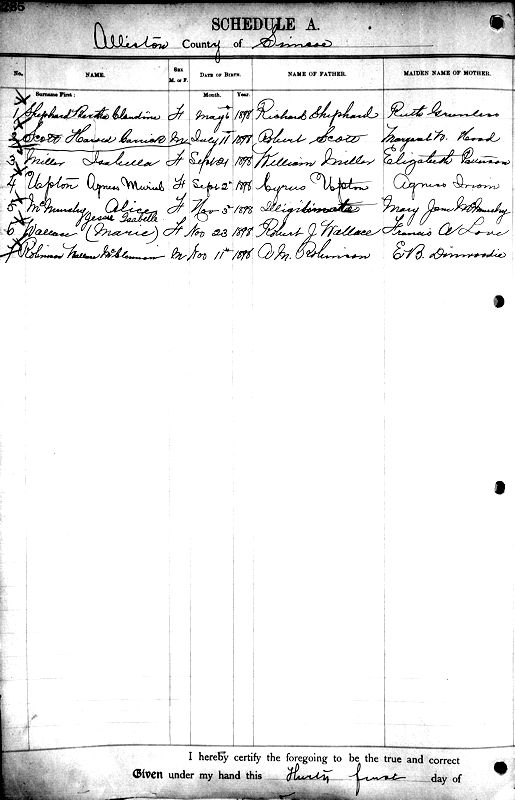 SCHEDULE A.
Alliston County of Simcoe
No. NAME. SEX M. or F. DATE OF BIRTH. NAME OF FATHER. MAIDEN NAME OF MOTHER.
Surname First: Month. Year.
1 Shephard Claudine F May 6 1898 Richard Shephard Ruth
2 Scott Harold Carrick M July 11 1898 Robert Scott Margaret W. Hood
3 Miller Isabella F Sept 21 1898 William Miller Elizabeth
4 Upton Agness Muriel F Sept 2 1898 Cyrus Upton Agness
5 McMunsey Alice F Nov 3 1898 Illigitimate Mary Jane McMunsey
Jessie Isabelle
6 Wallace (Marie) F Nov 23 1898 Robert J. Wallace Francis A Love
7 Robinson Wallace M Nov 11 1898 M. Robinson E B. Dinwoodie
I hereby certify the foregoing to be the true and correct
Given under my hand this Thirty first day of